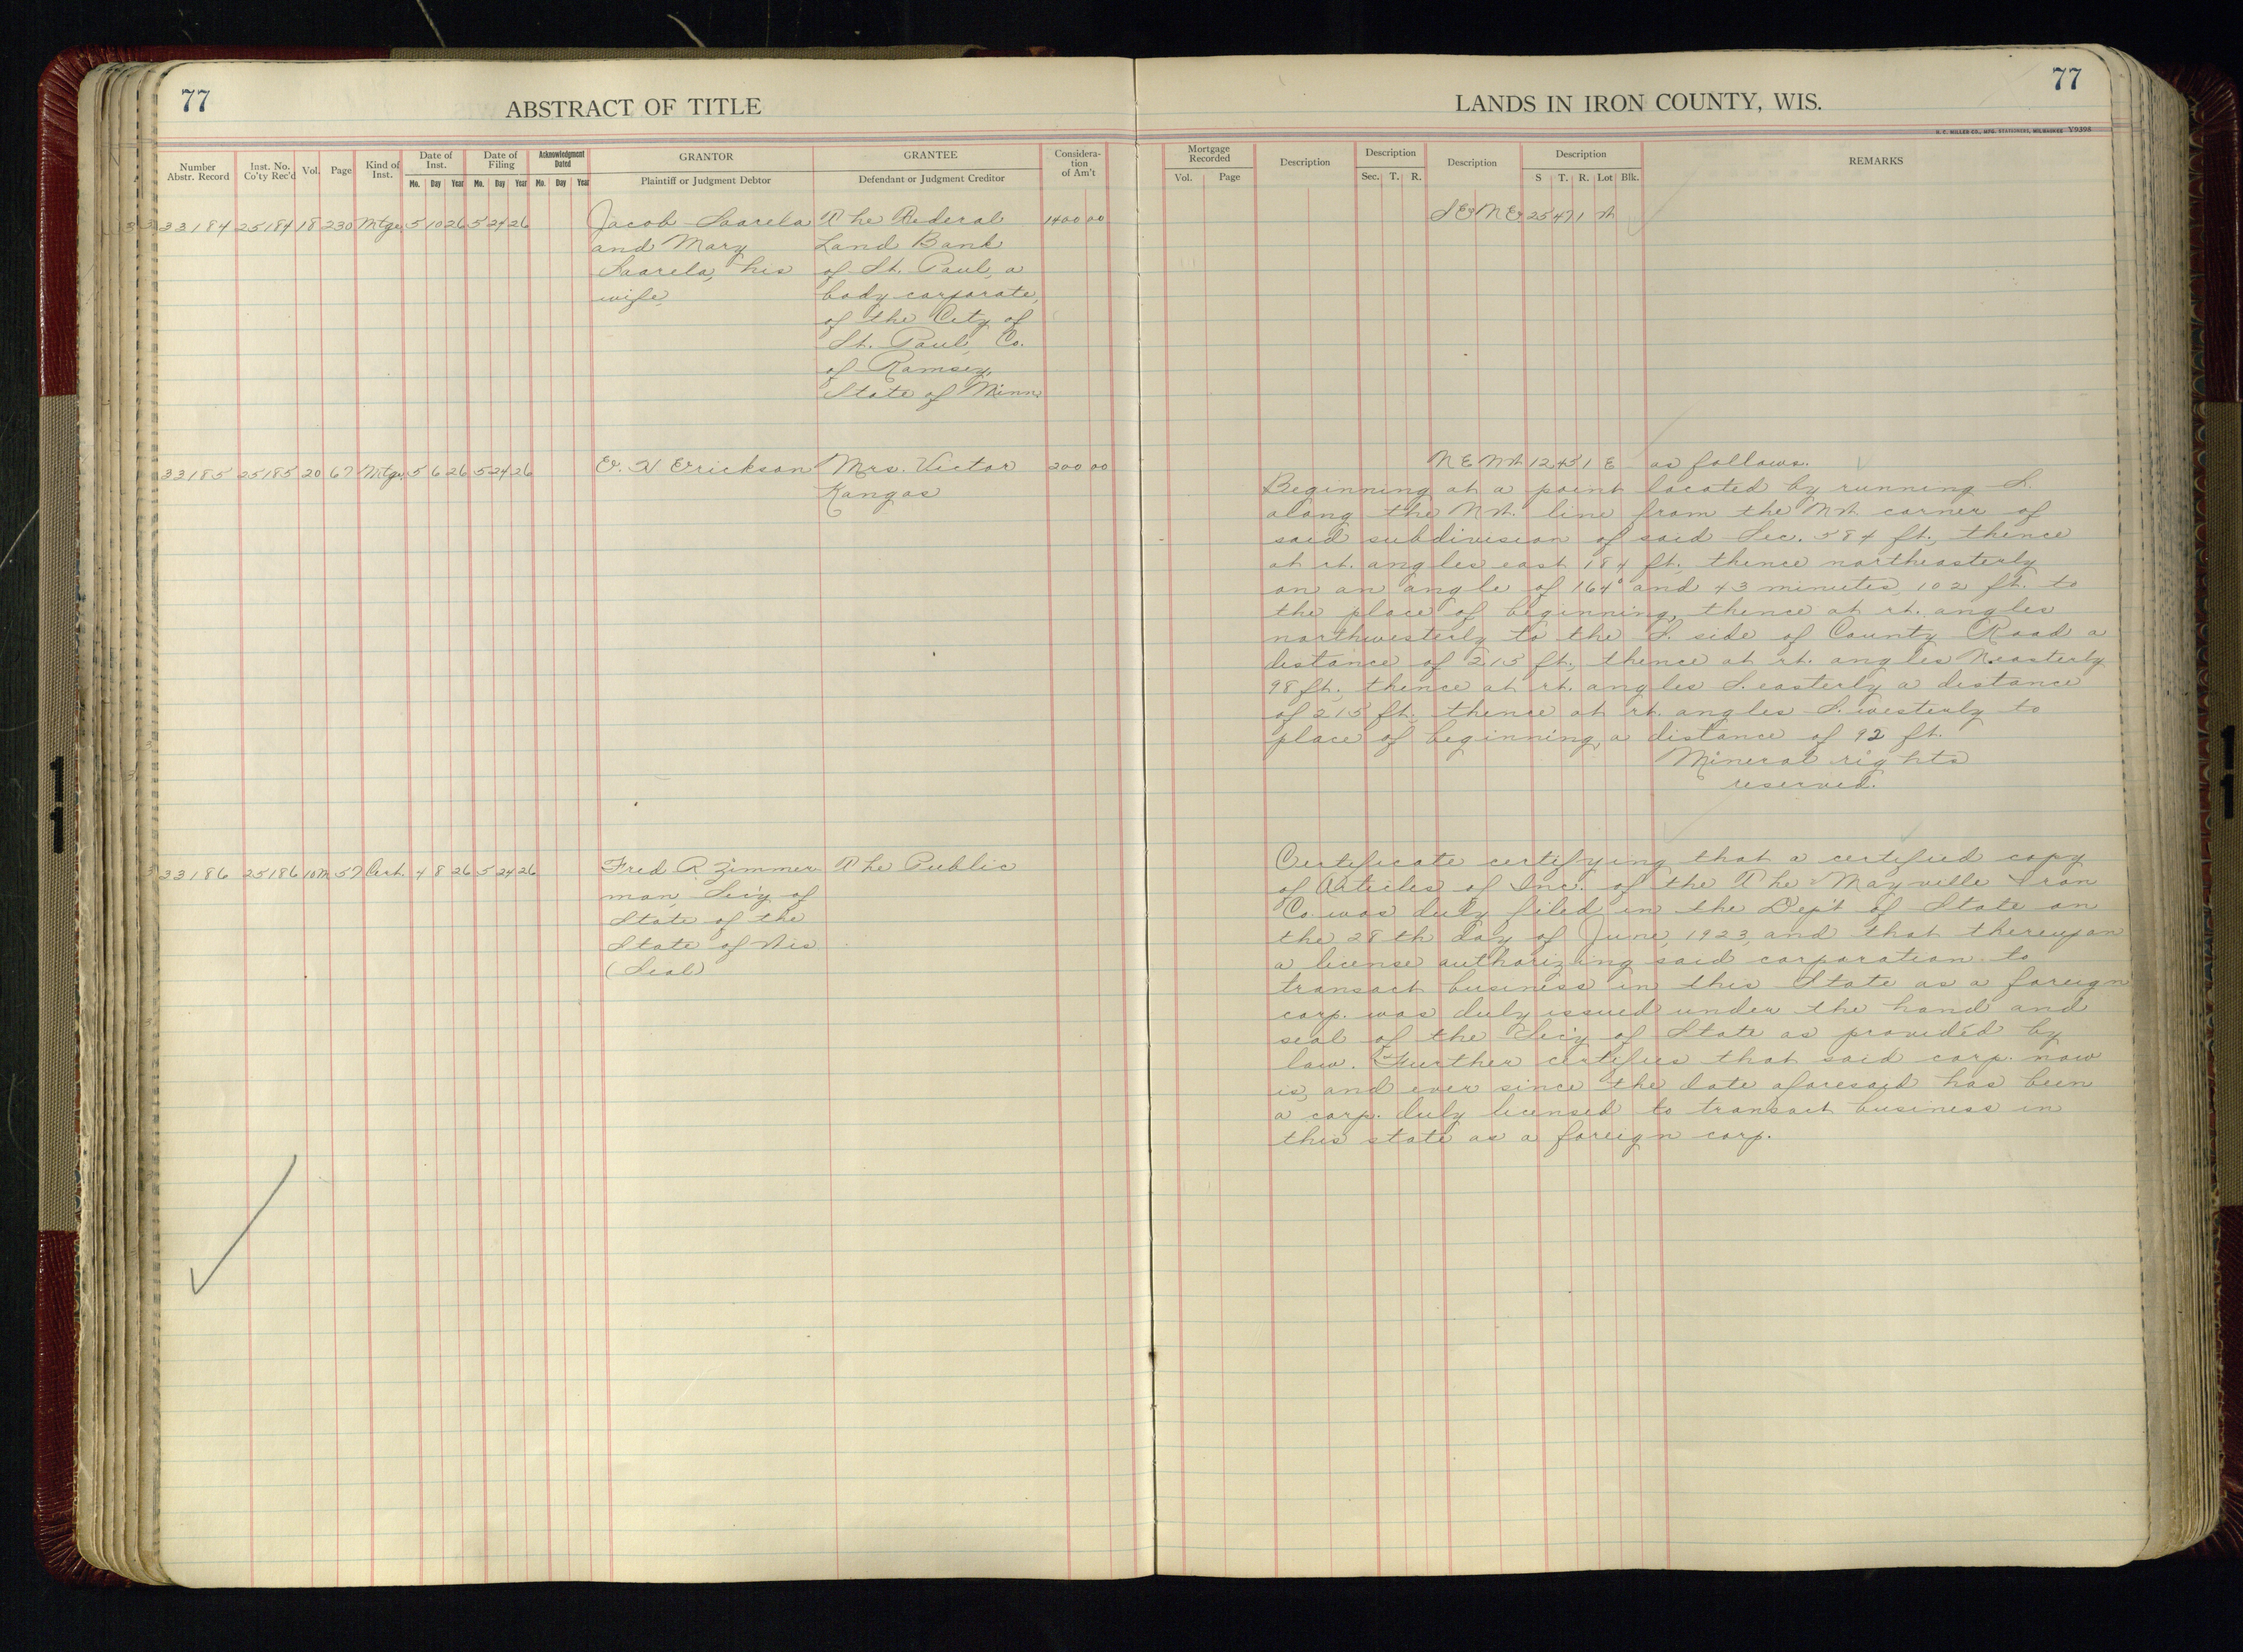 77
ABSTRACT OF TITLE
LANDS IN IRON COUNTY, WIS.
77
H. C. MILLER CO., MFG. STATIONERS, MILWAUKEE V9396
Number Abstr. Record Inst. No. Co'ty Rec'd Vol. Page Kind of Inst. Date of Inst. Mo. Day Year Date of Filing Mo. Day Year Acknowledgment Dated Mo. Day Year GRANTOR Plaintiff or Judgment Debtor GRANTEE Defendant or Judgment Creditor Consideration of Am't
Mortgage Recorded Vol. Page Description Description Sec. T. R. Description Description S T. R. Lot Blk. REMARKS
33184 25184 18 230 Mtge 5 10 26 5 24 26 Jacob Saarela The Federal 1400 00 SE NE 25 47 1 W
and Mary Land Bank
Saarela, his of St. Paul, a
wife, body corporate,
of the City of
St. Paul, Co.
of Ramsey,
State of Minn.
33185 25185 20 67 Mtge 5 6 26 5 24 26 E. W Erickson Mrs. Victor 200 00 NE NW 12 45 1 E as follows.
Kangas
Beginning at a point located by running S.
along the NW. line from the NW corner of
said subdivision of said Sec. 584 ft., thence
at rt. angles east 184 ft. thence northeasterly
on an angle of 164° and 43 minutes, 102 ft. to
the place of beginning, thence at rt. angles
northwesterly to the S. side of County Road a
distance of 215 ft., thence at rt. angles N.easterly
98 ft., thence at rt. angles S.easterly a distance
of 215 ft., thence at rt. angles S.westerly to
place of beginning, a distance of 92 ft.
Mineral rights
reserved.
33186 25186 10M 57 Cert. 4 8 26 5 24 26 Fred R. Zimmer The Public
man, Sec'y of
State of the
State of Wis
(Seal)
Certificate certifying that a certified copy
of Articles of Inc. of the The Mayville Iron
Co. was duly filed in the Dep't of State on
the 28th day of June, 1923, and that thereupon
a license authorizing said corporation to
transact business in this State as a foreign
corp. was duly issued under the hand and
seal of the Sec'y of State as provided by
law. Further certifies that said corp. now
is, and ever since the date aforesaid has been
a corp. duly licensed to transact business in
this state as a foreign corp.